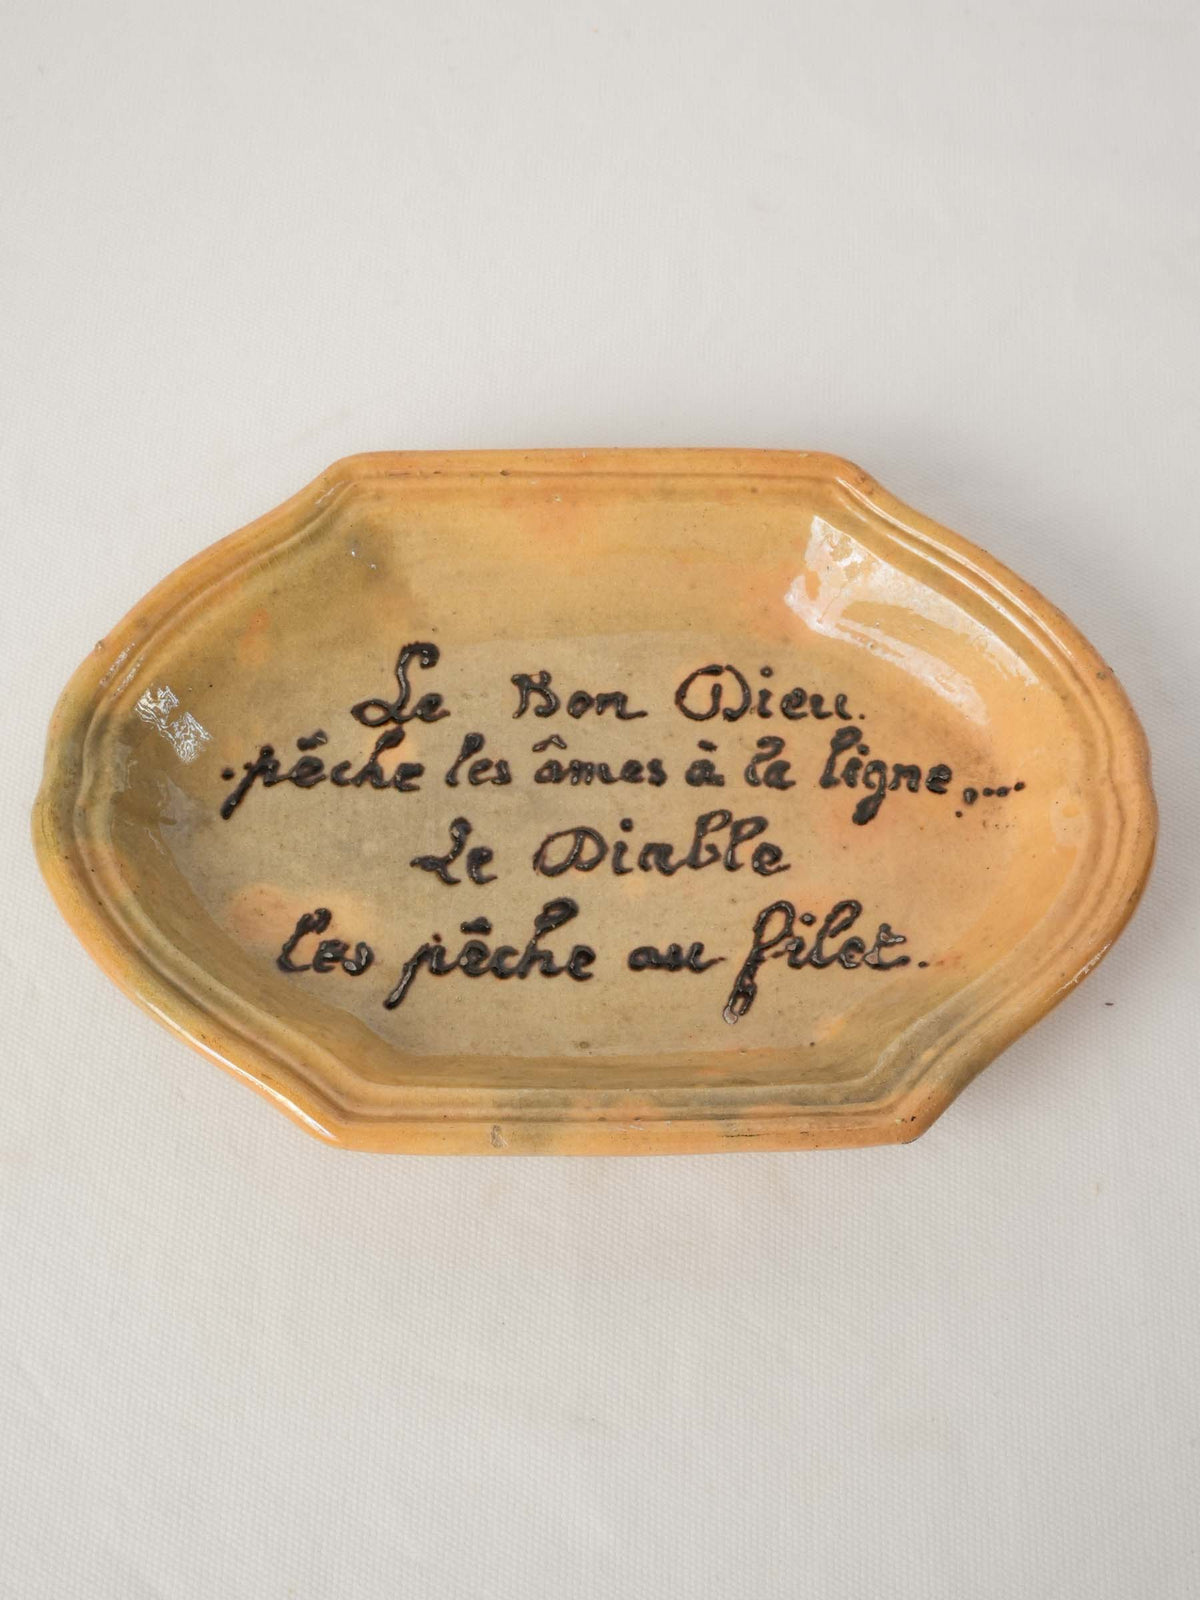 Le Bon Dieu.
pêche les âmes à la ligne,...
Le Diable
les pêche au filet.